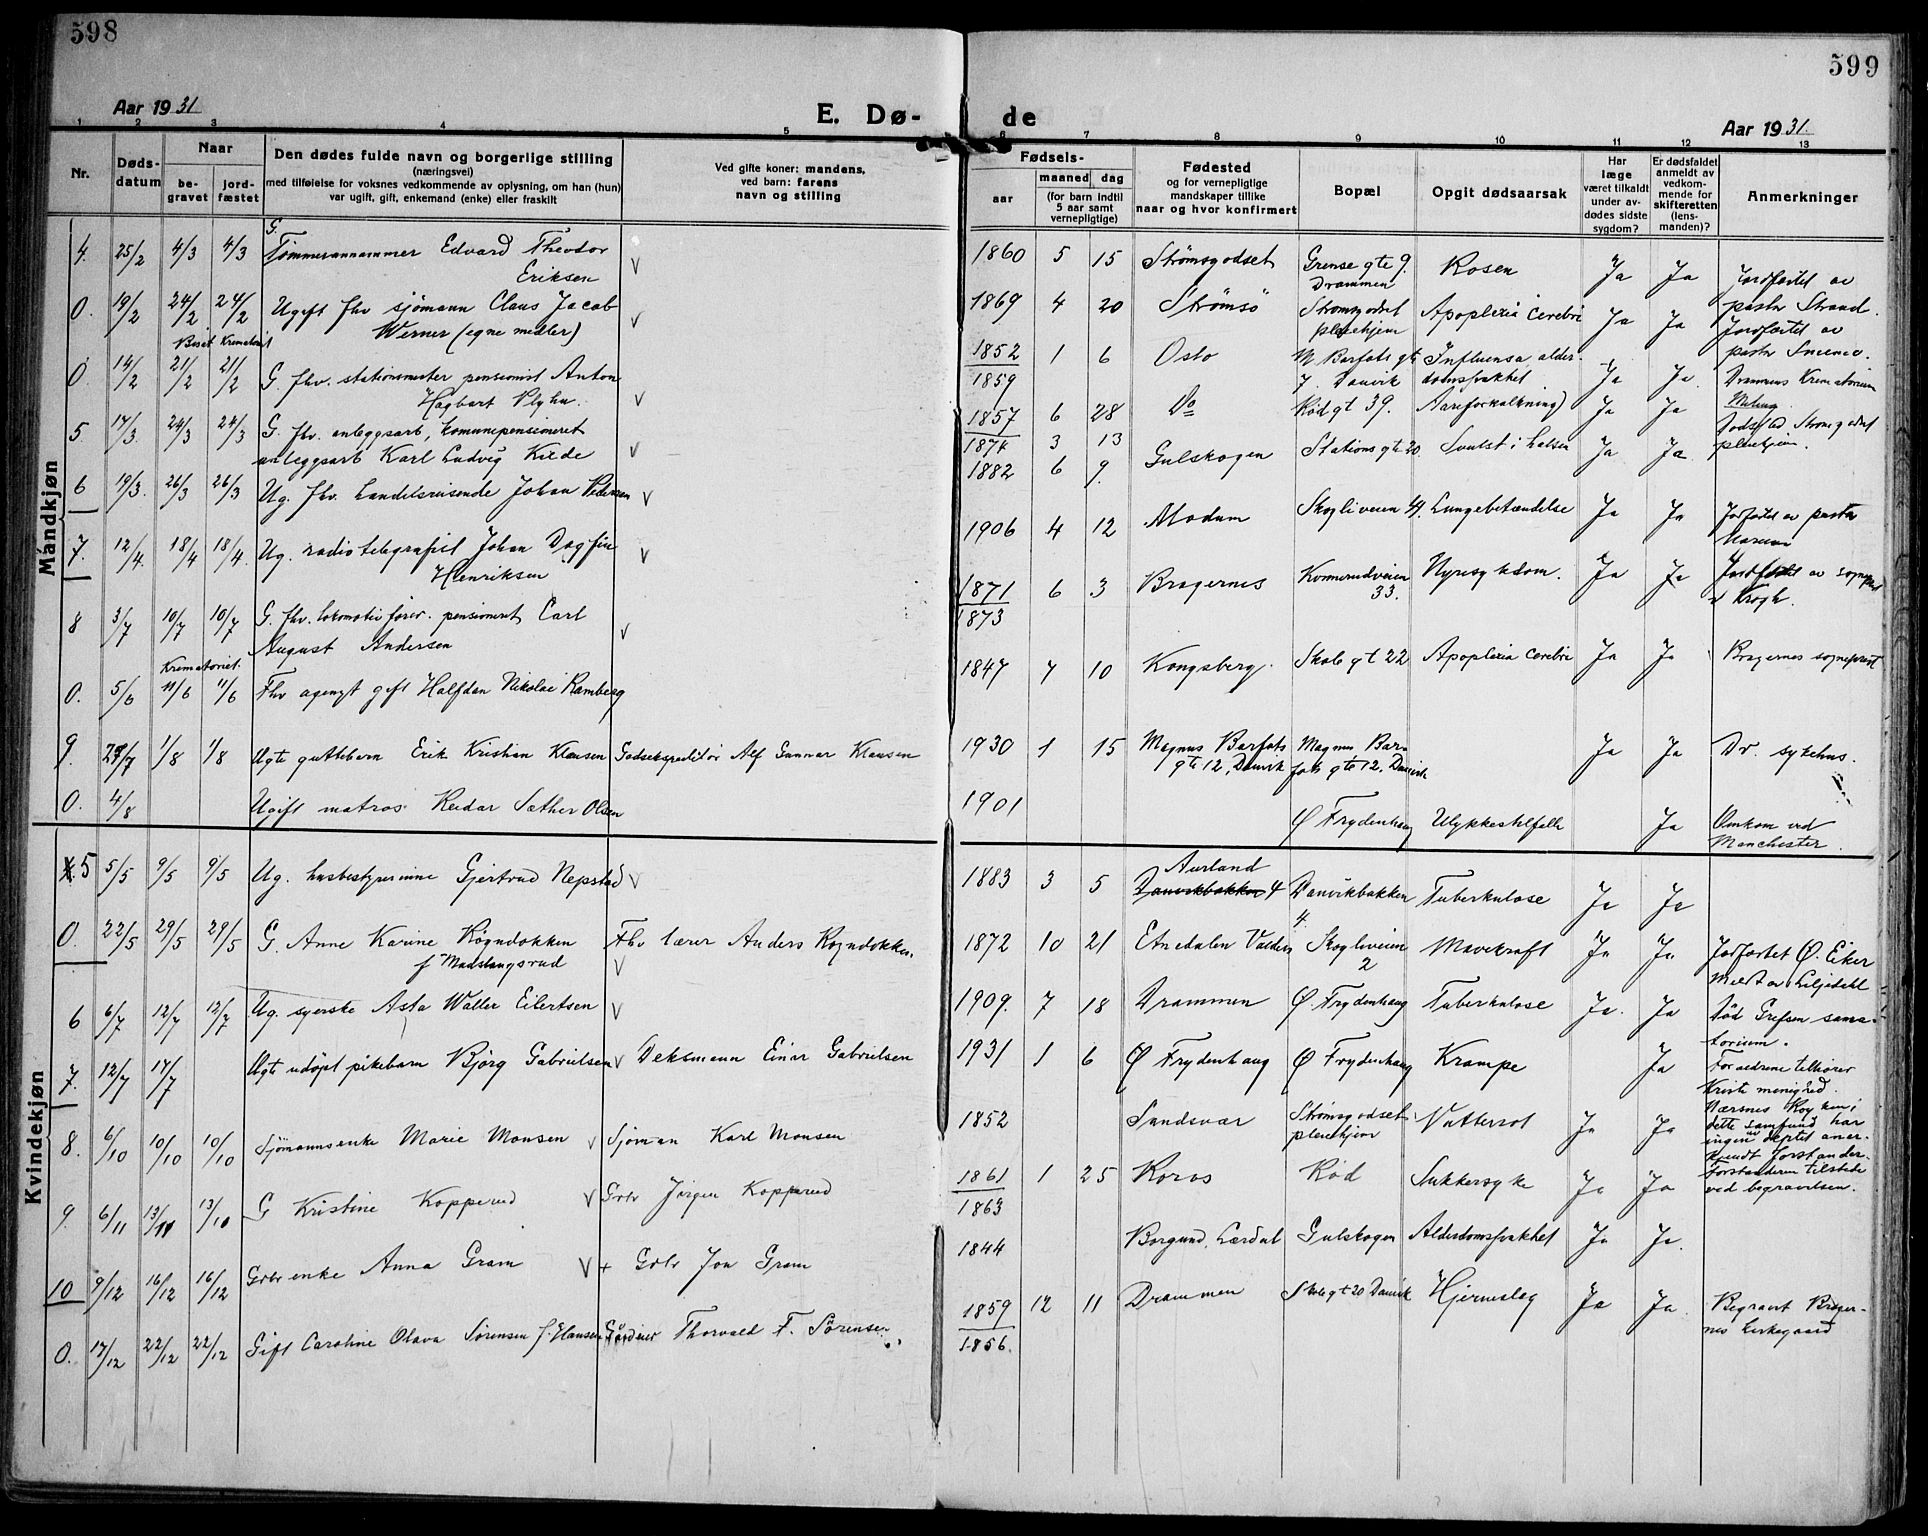 598
599
Aar 1931
E. Dø-
de
Aar 1931.
1 2 3 4 5 6 7 8 9 10 11 12 13
Nr.
Døds-
datum
Naar
be-
gravet
jord-
fæstet
Den dødes fulde navn og borgerlige stilling
(næringsvei)
med tilføielse for voksnes vedkommende av oplysning, om han (hun)
var ugift, gift, enkemand (enke) eller fraskilt
Ved gifte koner: mandens,
ved barn: farens
navn og stilling
Fødsels-
aar
maaned dag
(for barn indtil
5 aar samt
vernepligtige)
Fødested
og for vernepligtige
mandskaper tillike
naar og hvor konfirmert
Bopæl
Opgit dødsaarsak
Har
læge
været tilkaldt
under av-
dødes sidste
sygdom?
Er dødsfaldet
anmeldt av
vedkom-
mende for
skifteretten
(lens-
manden)?
Anmerkninger
Mandkjøn
4. 25/2 4/3 4/3 G. Tømmerannammer Edvard Theodor
Eriksen
1860 5 15 Strømsgodset Grense gte 9. Drammen Rosen Ja Ja Jordfæstet av
pastor Strand.
0. 19/2 24/2 24/2 Ugift fhv sjømann Claus Jacob
Werner (egne midler)
1869 4 20 Strømsø Strømsgodset pleiehjem Apoplexia cerebri Ja Ja Jordfæstet av
pastor
Bisat Krematoriet
0. 14/2 21/2 21/2 G. fhv. stationsmester pensionist Anton
Hagbart
1852 1 6 Oslo M Barfots gt 7. Danvik Influensa alder-
domssvakhet Ja Ja Drammens Krematorium
1859
5 17/3 24/3 24/3 G. fhv. anleggsarb, komunepensioneret
anleggsarb Karl Ludvig Kilde
1857 6 28 Do Rød gt 39. Aareforkalkning) Ja Ja Dødssted Stromgodset
pleiehjem.
1874 3 13
6 19/3. 26/3 26/3 Ug. fhv. handelsreisende Johan Pedersen
1882 6 9. Gulskogen Stations gte 20 Svulst i halsen Ja Ja
7. 12/4. 18/4 18/4. Ug. radiotelegrafist Johan Dagfin
Henriksen
1906 4 12 Modum Skogliveien 44. Lungebetændelse Ja Ja Jofæstet av pastor
8 3/7 10/7 10/7 G. fhv. lokomotivfører. pensioneret Carl
August Andersen
1871 6 3 Bragernes Konnerudveien 33. Nyresykdom. Ja Ja Jordfæstet av sogneprest
Krogh.
1873
Krematoriet.
0. 5/6 11/6 11/6 Fhv agengt gift Halfdan Nikolai Ramberg
1847 7 10 Kongsberg. Skole gt 22 Apoplexia cerebri Ja Ja Bragernes sogneprest
9. 27/7 1/8 1/8 Ugte guttebarn Erik Kristian Klausen Godsekspeditør Alf Gunnar Klausen
1930 1 15 Magnus Barfots gte 12, Danvik Magnus Bar-
fots gte 12. Danvik Ja Ja Dr. sykehus.
0. 4/8 Ugift matros Reidar Sæther Olsen
1901 Ø Frydenhaug Ulykkestilfelle Ja Omkom ved
Manchester.
Kvindekjøn
5 5/5 9/5 9/5 Ug. husbestyrerinne Gjertrud Nepstad
1883 3 5 Aurland Danvikbakken 4 Danvikbakken 4. Tuberkulose Ja Ja
0. 22/5 29/5 29/5 G. Anne Karine Rögndokken
f Madslangsrud
Fhv lærer Anders Rogndokken.
1872 10 21 Etnedalen Valdres Skogliveien 2 Mavekraft Ja Ja Jofæstet Ø. Eiker
Meldt av Liljedahl
6 6/7 12/7 12/7 Ug. syerske Asta Waller Eilertsen
1909. 7 18 Drammen Ø. Frydenhaug Tuberkulose Ja. Ja Død Grefsen sana-
torium.
7. 12/7 17/7 Ugte udøpt pikebarn Bjørg Gabrielsen Deksmann Einar Gabrielsen
1931 1 6 Ø Frydenhaug Ø Frydenhaug Krampe Ja Foreldrene tilhører
Kristi menighed.
Nærsnes Røyken i
dette samfund har
ingen av deptet aner-
kjendt Forstander.
Forstanderen tilstede
ved begravelsen.
8. 6/10 10/10 10/10 Sjømannsenke Marie Monsen Sjøman Karl Monsen
1852 Sandsvær Strømsgodset pleiehjem Vattersot Ja Ja
9. 6/11 13/11 13/10 G Kristine Kopperud Grbr Jørgen Kopperud
1861 1 25 Røros Rød Sukkersyke Ja Ja
1863
10 9/12 16/12 16/12 Grbr enke Anna Gram + Grbr Jon Gram
1844 Borgund, Lærdal Gulskogen Alderdomssvakhet Ja Ja.
0. 17/12 22/12 22/12 Gift Caroline Olava Sørensen f. Hansen Gårdeier Thorvald F. Sørensen
1859 12 11 Drammen Skolegt 20 Danvik Hjerneslag Ja Ja. Begravt Brager-
nes kirkegaard
1856.